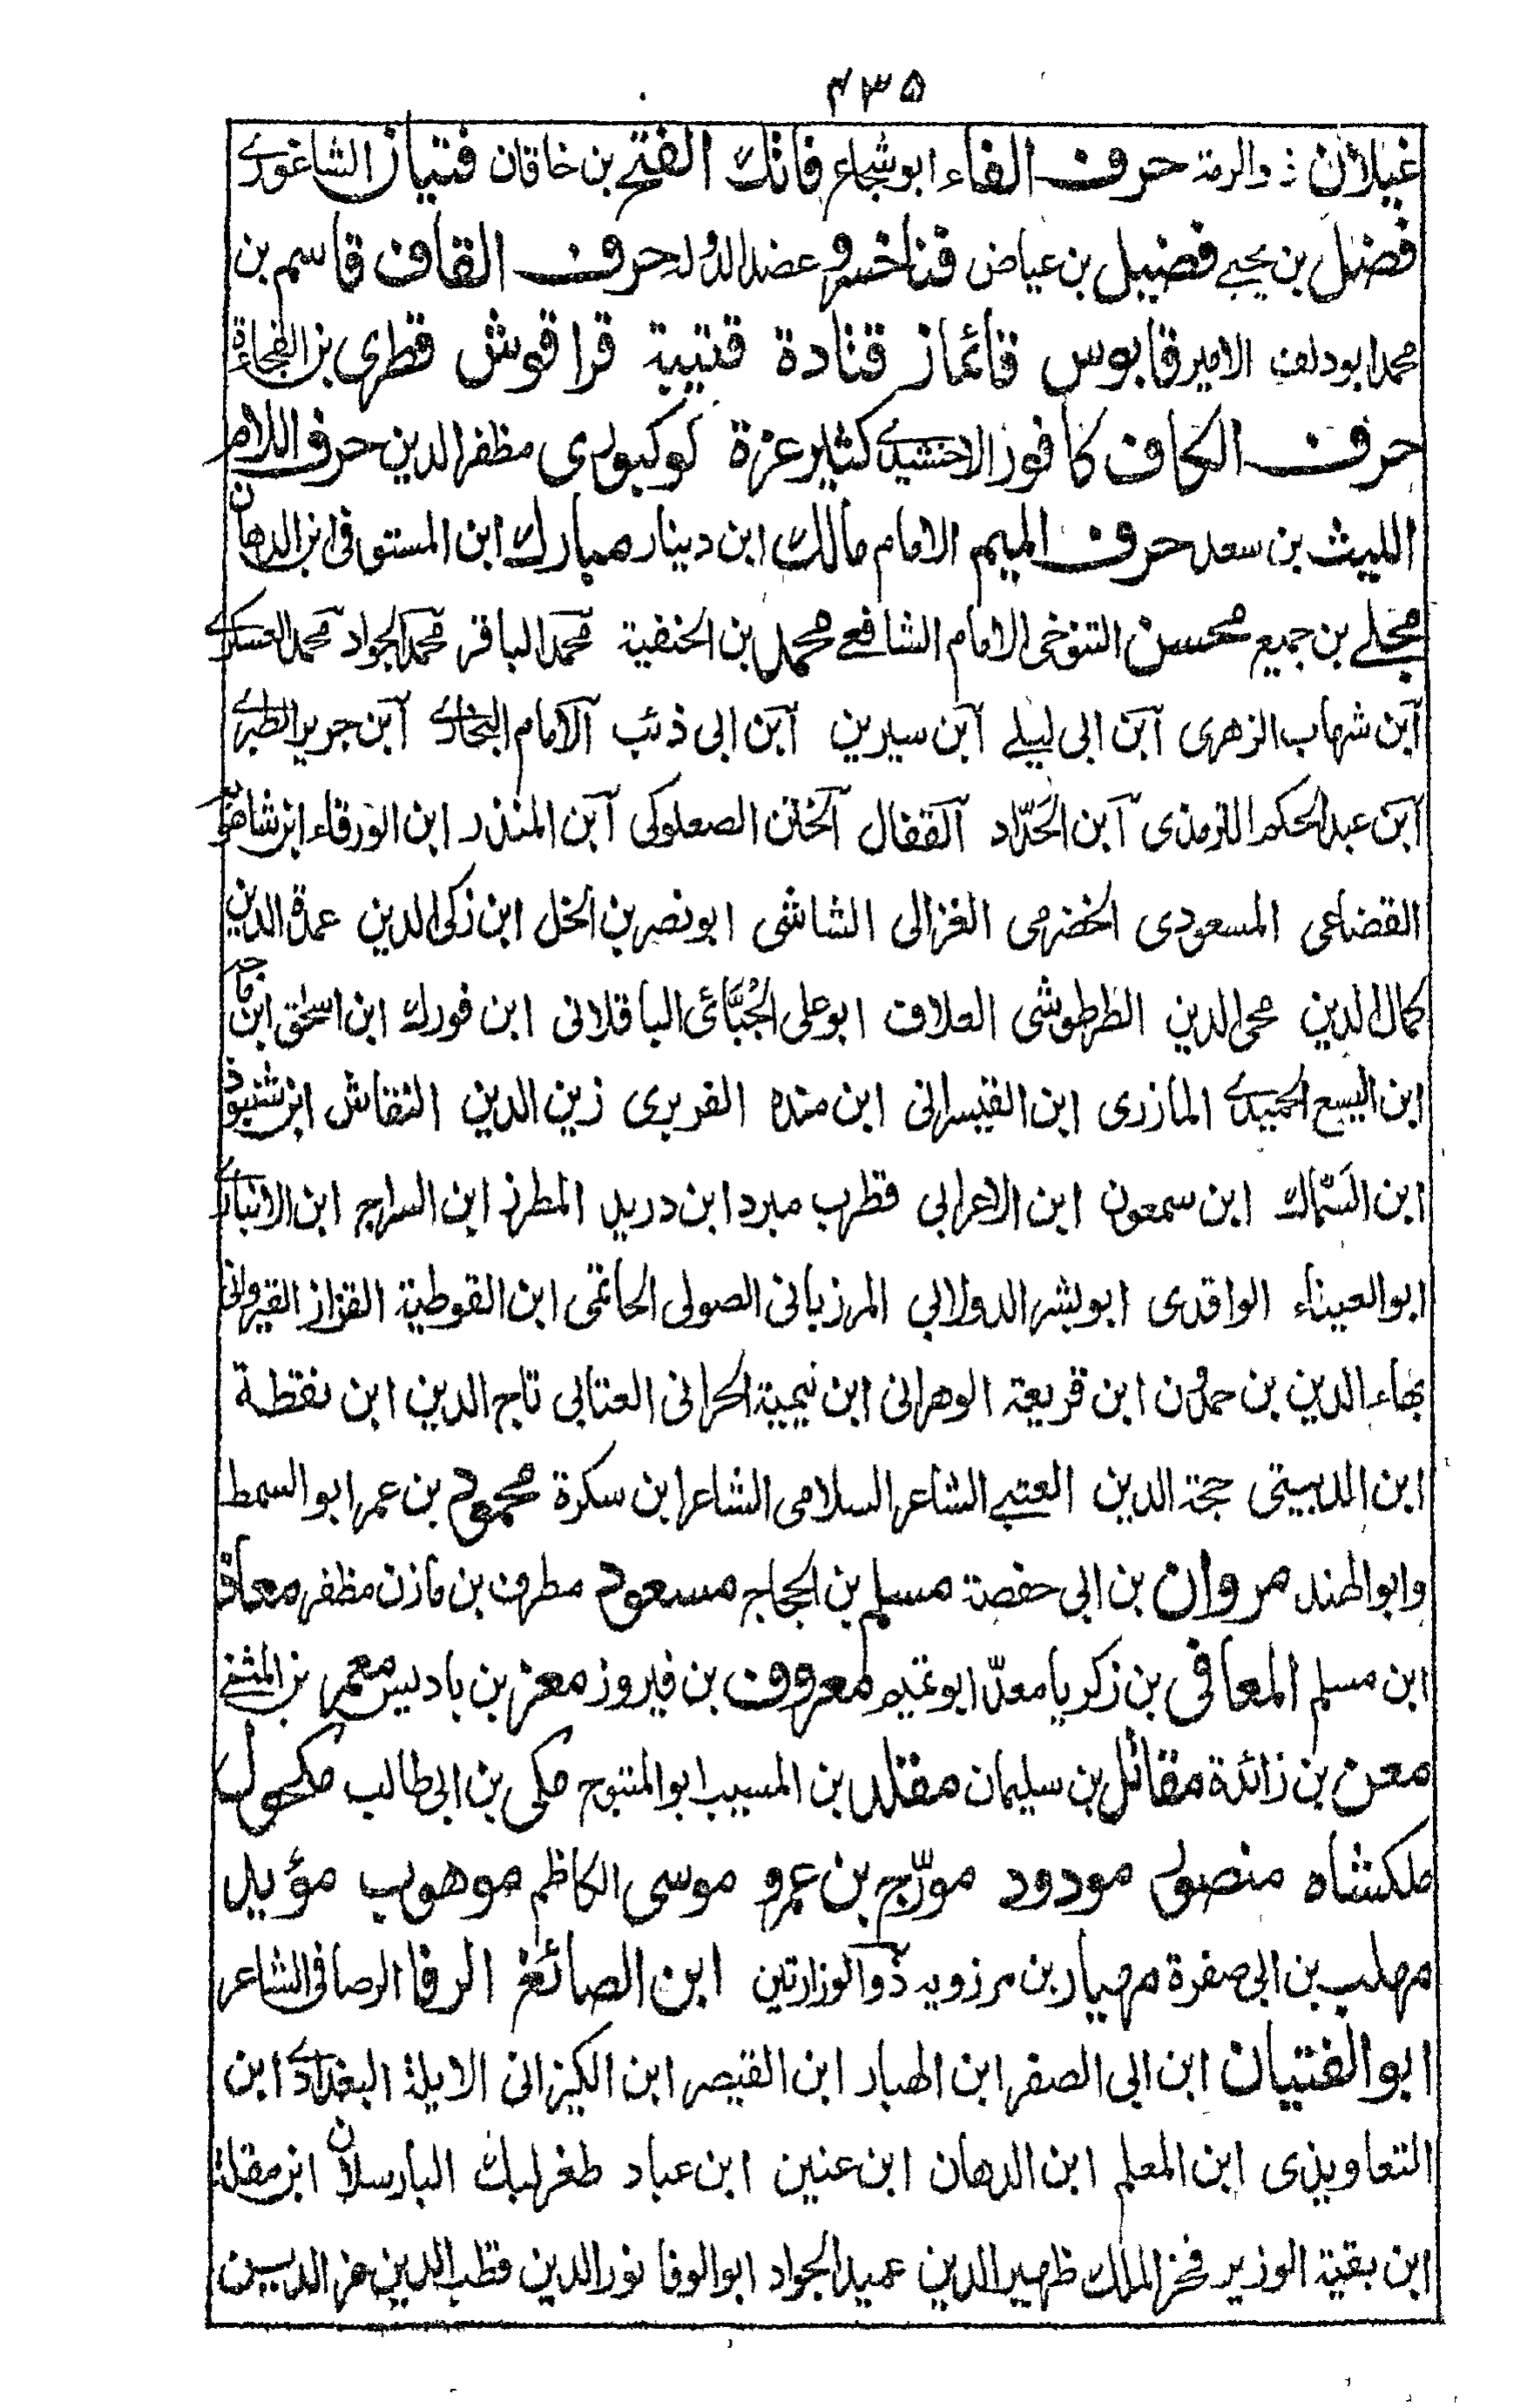 ۴۳۵
غيلان ذوالرمة حرف الفاء ابو شجاع فاتك الفتح بن خاقان فتيان الشاغوري
فضل بن يحيے فضيل بن عياض فناخسرو عضد الدولة حرف القاف قاسم بن
محمد ابو دلف الامير قابوس قائماز قتادة قتيبة قراقوش قطري بن الفجاءة
حرف الكاف كافور الاخشيدي كثير عزة كوكبوري مظفر الدين حرف اللام
الليث بن سعد حرف الميم الامام مالك ابن دينار مبارك ابن المستوفى ابن الدهان
مجلے بن جميع محسن التنوخى الامام الشافعے محمد بن الحنفية محمد الباقر محمد الجواد محمد العسكري
آبن شهاب الزهرى آبن ابى ليلے آبن سيرين آبن ابى ذئب آلامام البخاري آبن جرير الطبري
آبن عبد الحكم الترمذى آبن الحَدّاد آلقفال آلختن الصعلوكى آبن المنذر ابن الورقاء ابن شاهويه
القضاعى المسعودى الخضرمى الغزالى الشاشى ابو نصر بن الخل ابن زكى الدين عمدة الدين
كمال الدين محى الدين الطرطوشى العلاف ابو على الجُبَّائى الباقلانى ابن فورك ابن اسحٰق ابن ماجه
ابن اليسع الحميدي المازرى ابن القيسرانى ابن منده الفربرى زين الدين النقاش ابن شنبوذ
ابن السَمّاك ابن سمعون ابن الاعرابى قطرب مبرد ابن دريد المطرز ابن السراج ابن الانباري
ابو العيناء الواقدى ابو بشر الدولابى المرزبانى الصولى الحاتمى ابن القوطية القزاز القيروانى
بهاء الدين بن حمدون ابن قريعة الوهرانى ابن تيمية الحرانى العتابى تاج الدين ابن نقطة
ابن الدبيثى حجة الدين العتبے الشاعر السلامى الشاعر ابن سكرة محمود بن عمر ابو السمط
وابو الهند مروان بن ابى حفصة مسلم بن الحجاج مسعود مطرف بن مازن مظفر معاذ
ابن مسلم المعافى بن زكريا معدّ ابو تميم معروف بن فيروز معز بن باديس معمر بن المثنے
معن بن زائدة مقاتل بن سليمان مقلد بن المسيب ابو المتوج مكى بن ابى طالب مكحول
ملكشاه منصور مودود مورّج بن عمرو موسى الكاظم موهوب مؤيد
مهلب بن ابى صفرة مهيار بن مرزويه ذو الوزارتين ابن الصائغ الرفا الرصافى الشاعر
ابو الفتيان ابن ابى الصقر ابن الهبار ابن القيصر ابن الكيزانى الابلة البغدادي ابن
التعاويذى ابن المعلم ابن الدهان ابن عنين ابن عباد طغرلبك البارسلان ابن مقلة
ابن بقية الوزير فخر الملك ظهير الدين عميد الجواد ابو الوفا نور الدين قطب الدين عز الدين